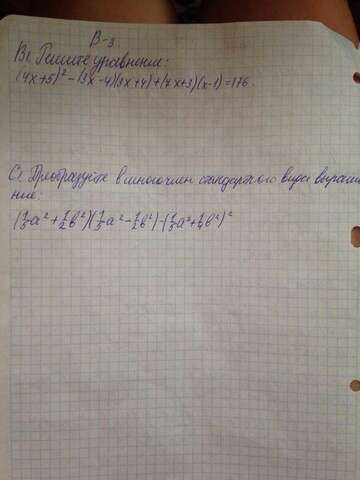 В-3.
В1. Решите уравнение:
(4x+5)² - (3x-4)(3x+4)+(7x+3)(x-1)=176.
С1. Преобразуйте в многочлен стандартного вида выраже
ние:
(1/3a²+1/2b²)(1/3a²-1/2b²)-(1/3a²+1/4b²)²